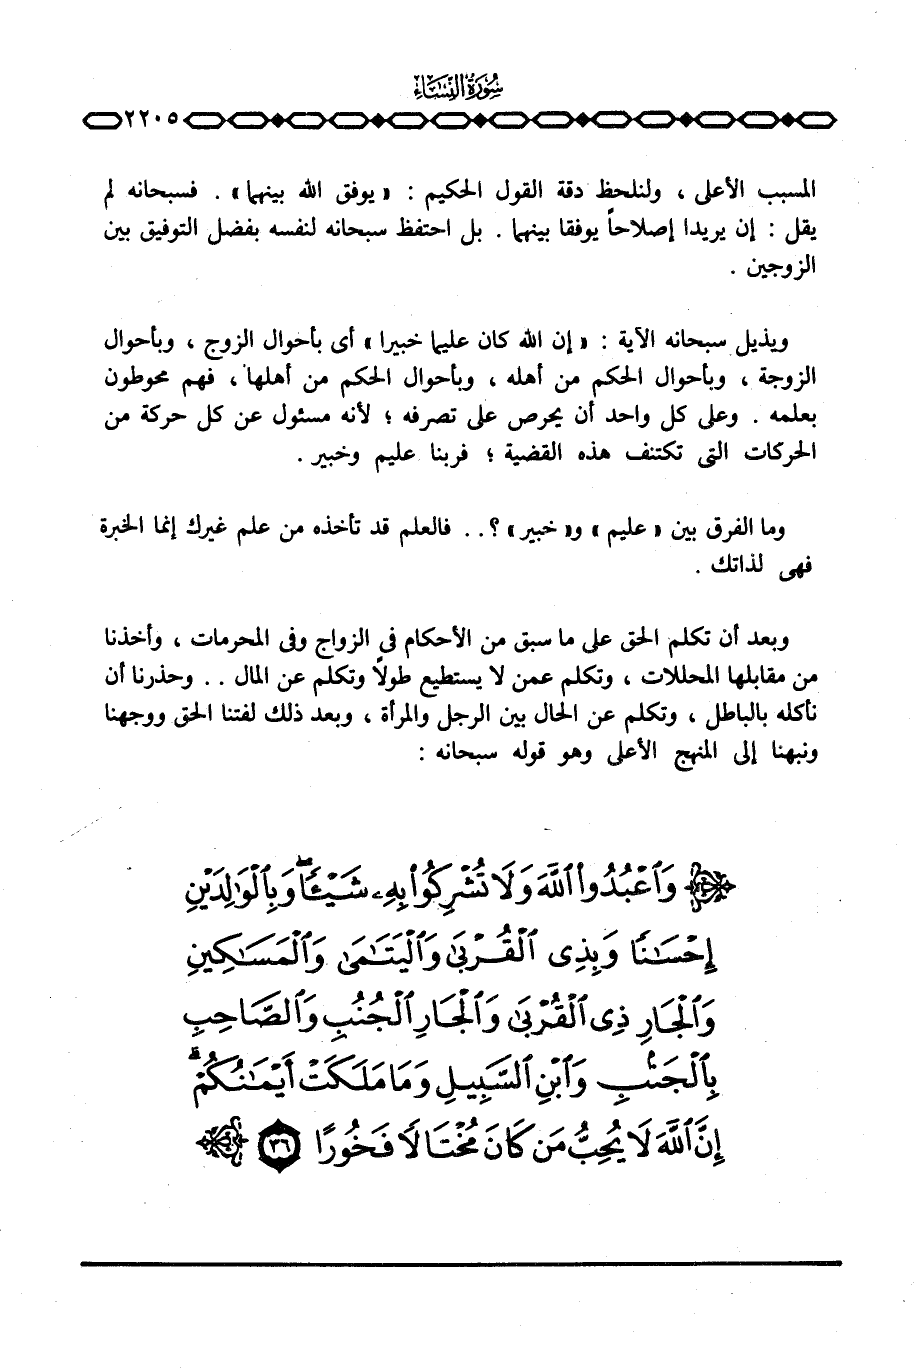 سُورَةُ النِّسَاءِ
٢٢٠٥
المسبب الأعلى ، ولنلحظ دقة القول الحكيم : « يوفق الله بينهما » . فسبحانه لم
يقل : إن يريدا إصلاحاً يوفقا بينهما . بل احتفظ سبحانه لنفسه بفضل التوفيق بين
الزوجين .
ويذيل سبحانه الآية : « إن الله كان عليما خبيرا » أى بأحوال الزوج ، وبأحوال
الزوجة ، وبأحوال الحكم من أهله ، وبأحوال الحكم من أهلها ، فهم محوطون
بعلمه . وعلى كل واحد أن يحرص على تصرفه ؛ لأنه مسئول عن كل حركة من
الحركات التى تكتنف هذه القضية ؛ فربنا عليم وخبير .
وما الفرق بين « عليم » و« خبير » ؟ . . فالعلم قد تأخذه من علم غيرك إنما الخبرة
فهى لذاتك .
وبعد أن تكلم الحق على ما سبق من الأحكام فى الزواج وفى المحرمات ، وأخذنا
من مقابلها المحللات ، وتكلم عمن لا يستطيع طولاً وتكلم عن المال . . وحذرنا أن
نأكله بالباطل ، وتكلم عن الحال بين الرجل والمرأة ، وبعد ذلك لفتنا الحق ووجهنا
ونبهنا إلى المنهج الأعلى وهو قوله سبحانه :
وَٱعْبُدُوا۟ ٱللَّهَ وَلَا تُشْرِكُوا۟ بِهِۦ شَيْـًٔا ۖ وَبِٱلْوَٰلِدَيْنِ
إِحْسَـٰنًا وَبِذِى ٱلْقُرْبَىٰ وَٱلْيَتَـٰمَىٰ وَٱلْمَسَـٰكِينِ
وَٱلْجَارِ ذِى ٱلْقُرْبَىٰ وَٱلْجَارِ ٱلْجُنُبِ وَٱلصَّاحِبِ
بِٱلْجَنۢبِ وَٱبْنِ ٱلسَّبِيلِ وَمَا مَلَكَتْ أَيْمَـٰنُكُمْ ۗ
إِنَّ ٱللَّهَ لَا يُحِبُّ مَن كَانَ مُخْتَالًا فَخُورًا ٣٦